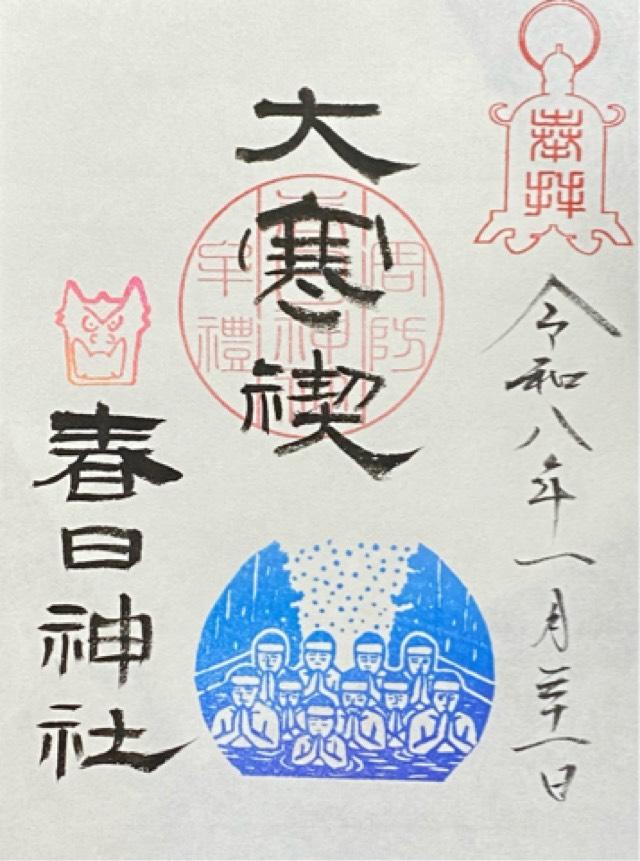 奉拝
令和八年一月二十一日
大寒禊
周防
春日神社
牟禮
春日神社